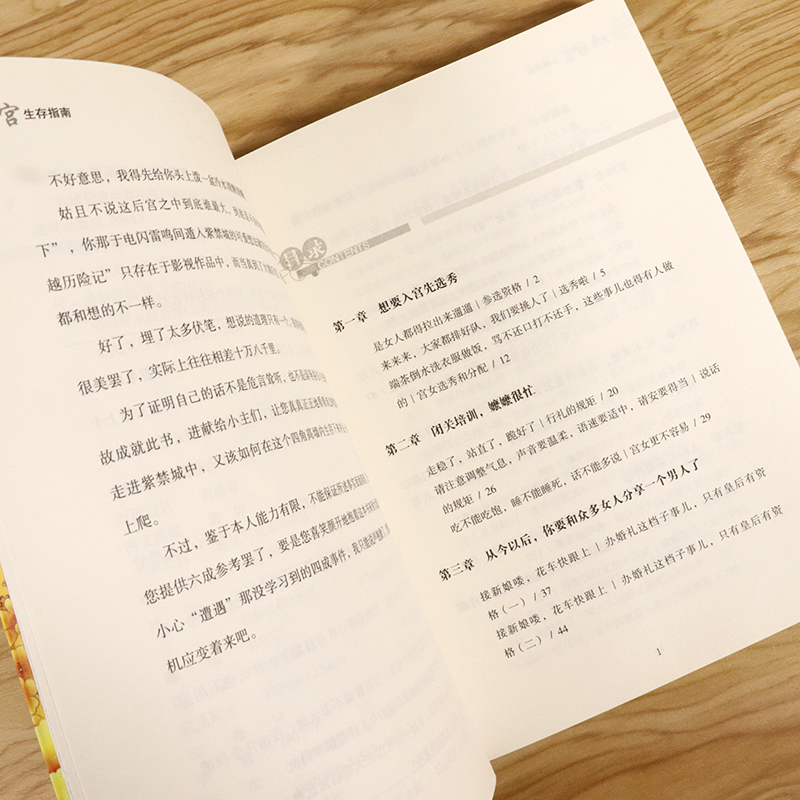 宫 生存指南
不好意思，我得先给你头上泼一盆冷水
姑且不说这后宫之中到底谁最大，到底是
下”，你那于电闪雷鸣间遁入紫禁城的
越历险记”只存在于影视作品中，而当真到了
都和想的不一样。
好了，埋了太多伏笔，想说的道理只有一个
很美罢了，实际上往往相差十万八千里。
为了证明自己的话不是危言耸听，也不是
故成就此书，进献给小主们，让您真真正正地
走进紫禁城中，又该如何在这个四角高墙内生存
上爬。
不过，鉴于本人能力有限，不能保证所述
您提供六成参考罢了，要是您喜笑颜开地抱着这本书
小心“遭遇”那没学习到的四成事件，我只能说
机应变着来吧。
目录
CONTENTS
第一章 想要入宫先选秀
是女人都得拉出来遛遛｜参选资格 / 2
来来来，大家都排好队，我们要挑人了｜选秀啦 / 5
端茶倒水洗衣服做饭，骂不还口打不还手，这些事儿也得有人做
的｜宫女选秀和分配 / 12
第二章 闭关培训，嬷嬷很忙
走稳了，站直了，跪好了｜行礼的规矩 / 20
请注意调整气息，声音要温柔，语速要适中，请安要得当｜说话
的规矩 / 26
吃不能吃饱，睡不能睡死，话不能多说｜宫女更不容易 / 29
第三章 从今以后，你要和众多女人分享一个男人了
接新娘喽，花车快跟上｜办婚礼这档子事儿，只有皇后有资
格（一） / 37
接新娘喽，花车快跟上｜办婚礼这档子事儿，只有皇后有资
格（二） / 44
1